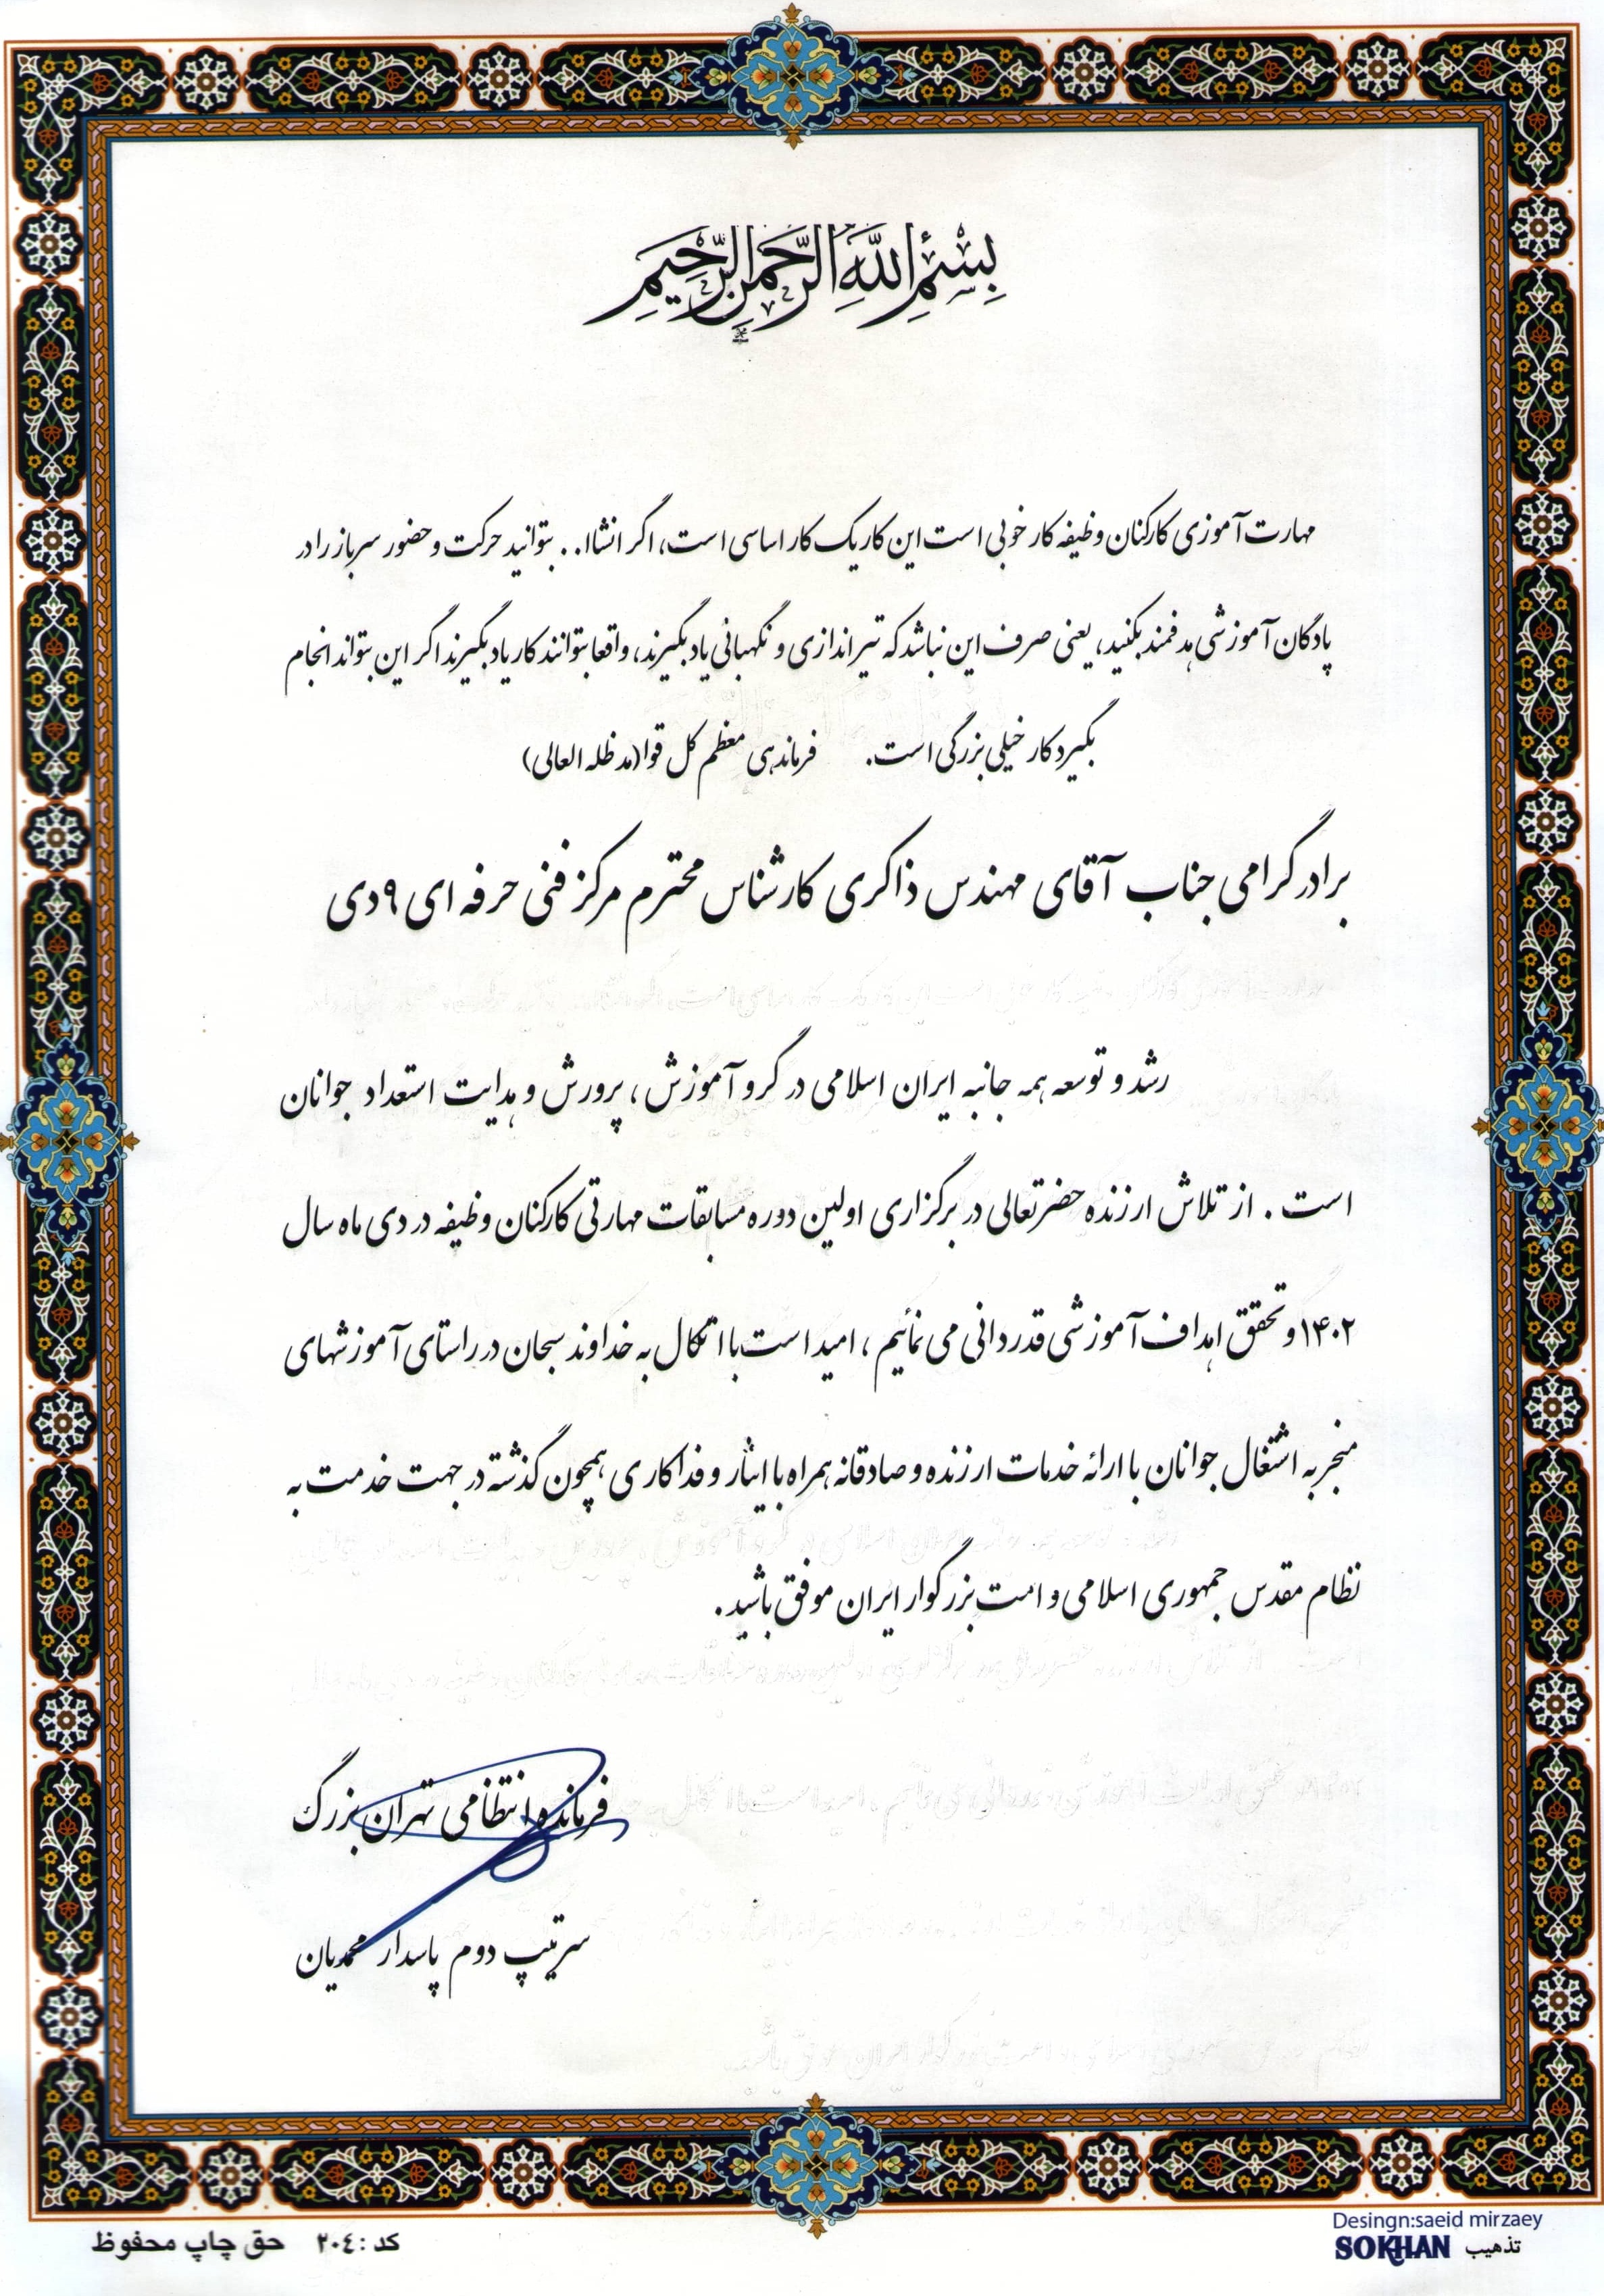 بِسْمِ اللَّهِ الرَّحْمَنِ الرَّحِيمِ
مهارت آموزی کارکنان وظیفه کار خوبی است این کار یک کار اساسی است، اگر انشاا.. بتوانید حرکت و حضور سرباز را در
پادگان آموزشی هدفمند بکنید، یعنی صرف این نباشد که تیراندازی و نگهبانی یاد بگیرند، واقعا بتوانند کار یاد بگیرند اگر این بتواند انجام
بگیرد کار خیلی بزرگی است. فرماندهی معظم کل قوا (مد ظله العالی)
برادر گرامی جناب آقای مهندس ذاکری کارشناس محترم مرکز فنی حرفه ای ۹ دی
رشد و توسعه همه جانبه ایران اسلامی در گرو آموزش ، پرورش و هدایت استعداد جوانان
است . از تلاش ارزنده حضرتعالی در برگزاری اولین دوره مسابقات مهارتی کارکنان وظیفه در دی ماه سال
۱۴۰۲ و تحقق اهداف آموزشی قدردانی می نمائیم ، امید است با اتکال به خداوند سبحان در راستای آموزشهای
منجر به اشتغال جوانان با ارائه خدمات ارزنده و صادقانه همراه با ایثار و فداکاری همچون گذشته در جهت خدمت به
نظام مقدس جمهوری اسلامی و امت بزرگوار ایران موفق باشید .
فرمانده انتظامی تهران بزرگ
سرتیپ دوم پاسدار محمدیان
Desingn:saeid mirzaey
تذهیب SOKHAN
کد : ۲۰۴ حق چاپ محفوظ